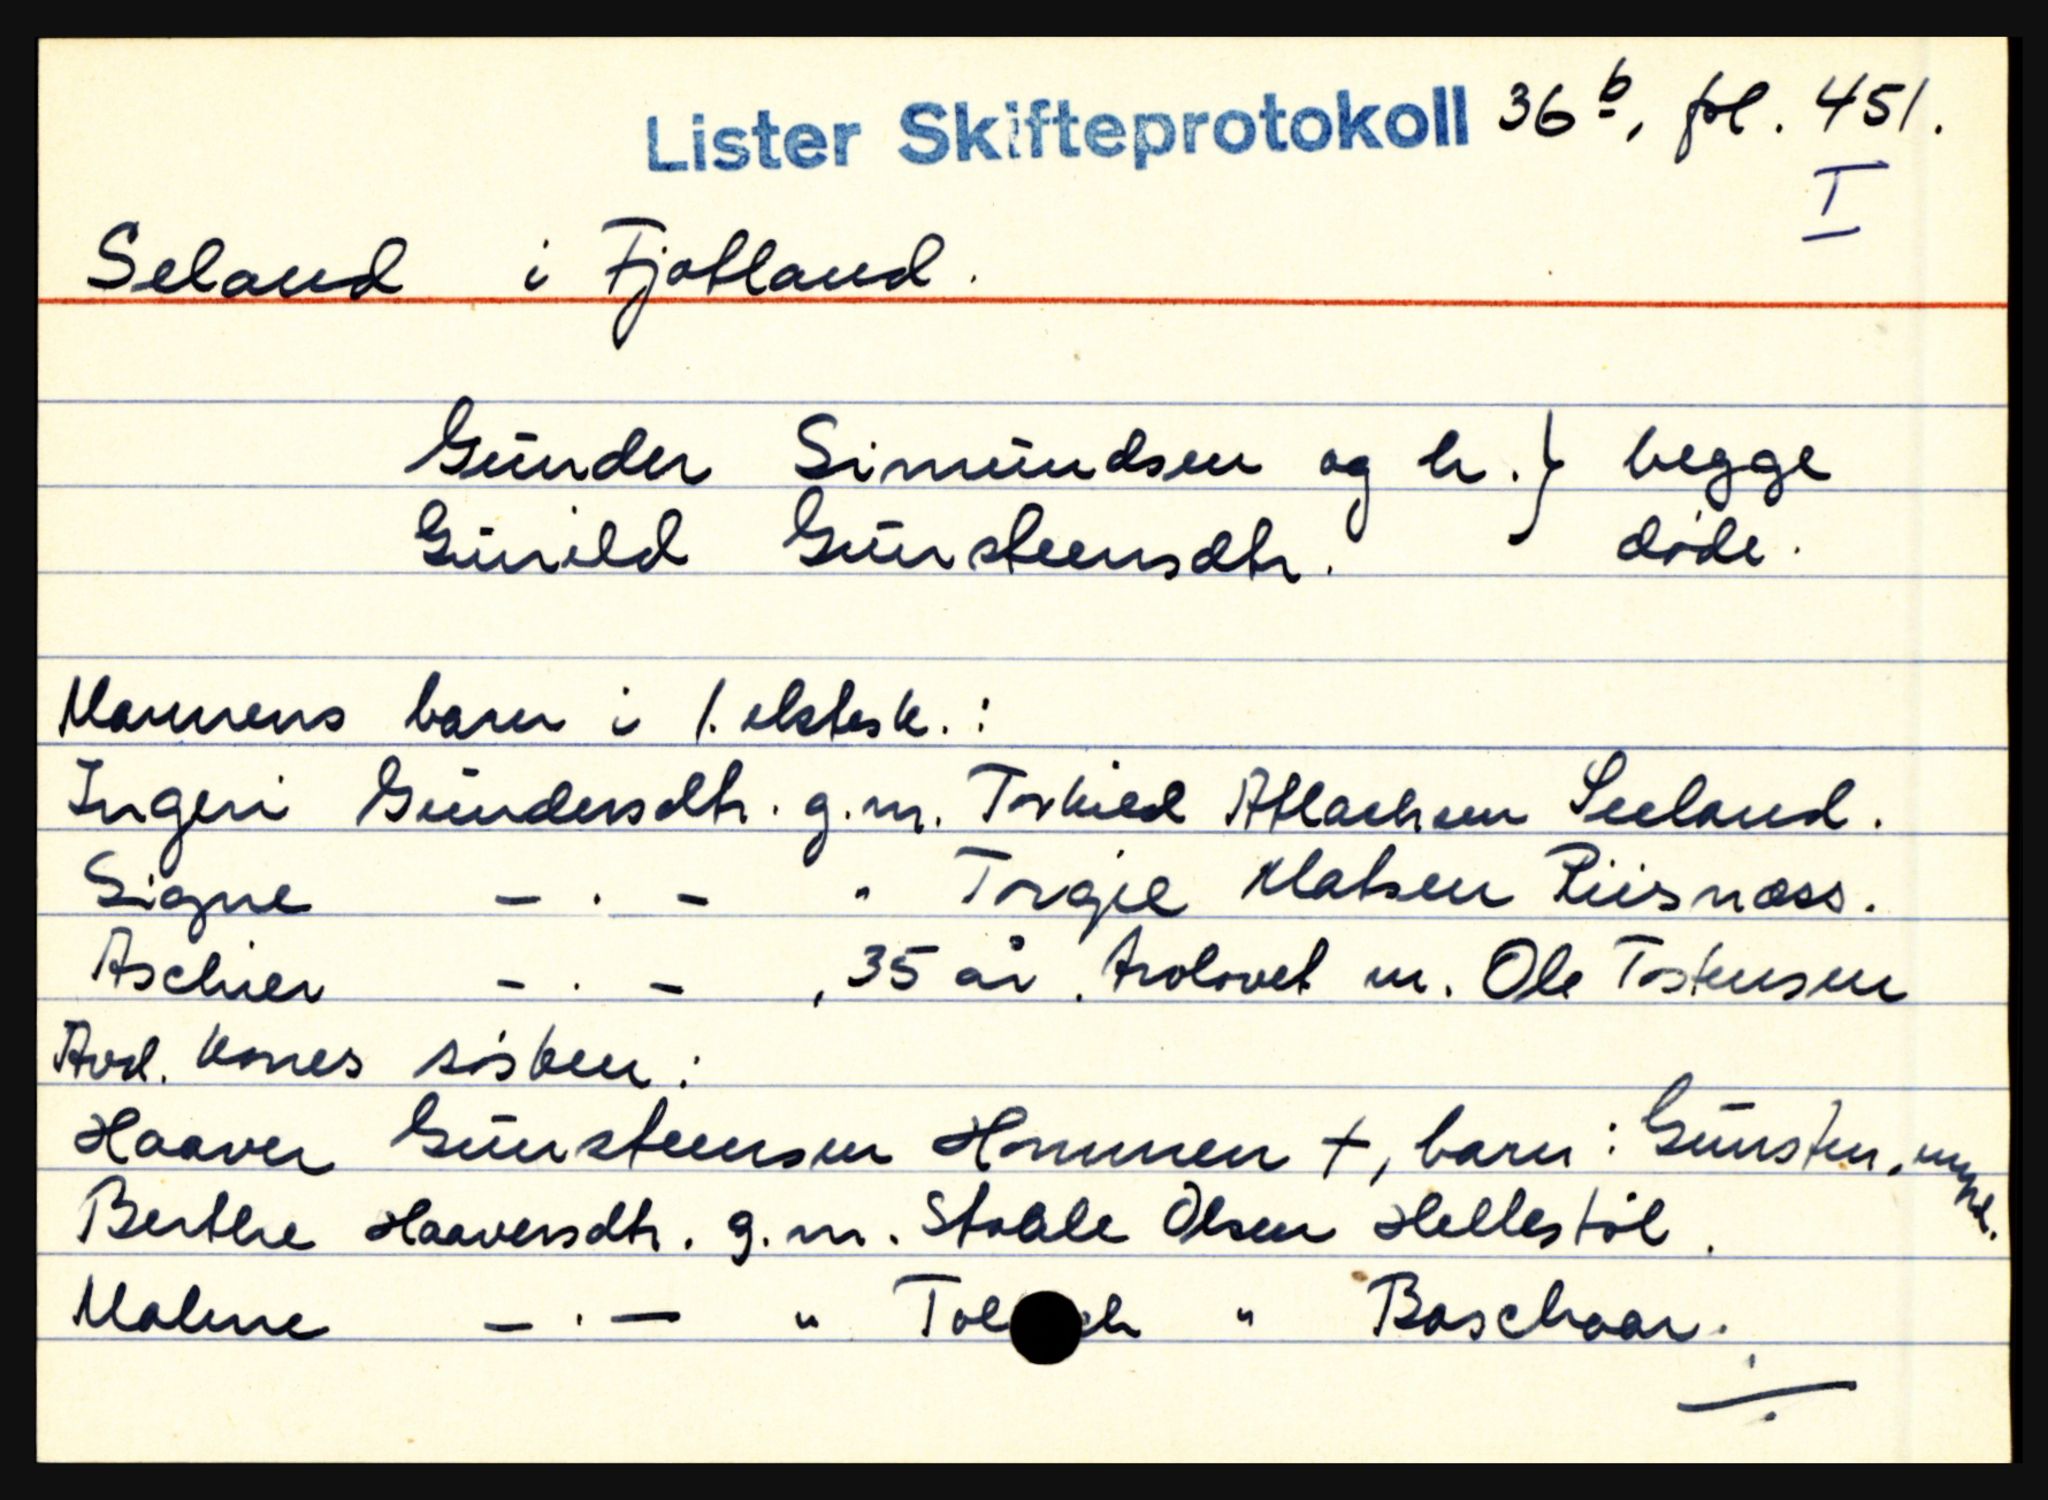 Lister Skifteprotokoll 36b, fol. 451.
I
Seland i Fjotland.
Gūnder Simūndsen og h. } begge
Gūnild Gūnsteensdtr. døde.
Mannens barn i 1. ektesk. :
Ingeri Gūndersdtr. g.m. Torkild Atlachsen Seeland.
Signe — . — " Torgie Matsen Riisnæss.
Aschier — . — , 35 år, trolovet m. Ole Tostensen
Avd. kones søsken :
Haaver Gūnsteensen Hommen +, barn : Gūnsten, mynd.
Berthe Haaversdtr. g.m. Stohle Olsen Hellestøl.
Malene — . — " "